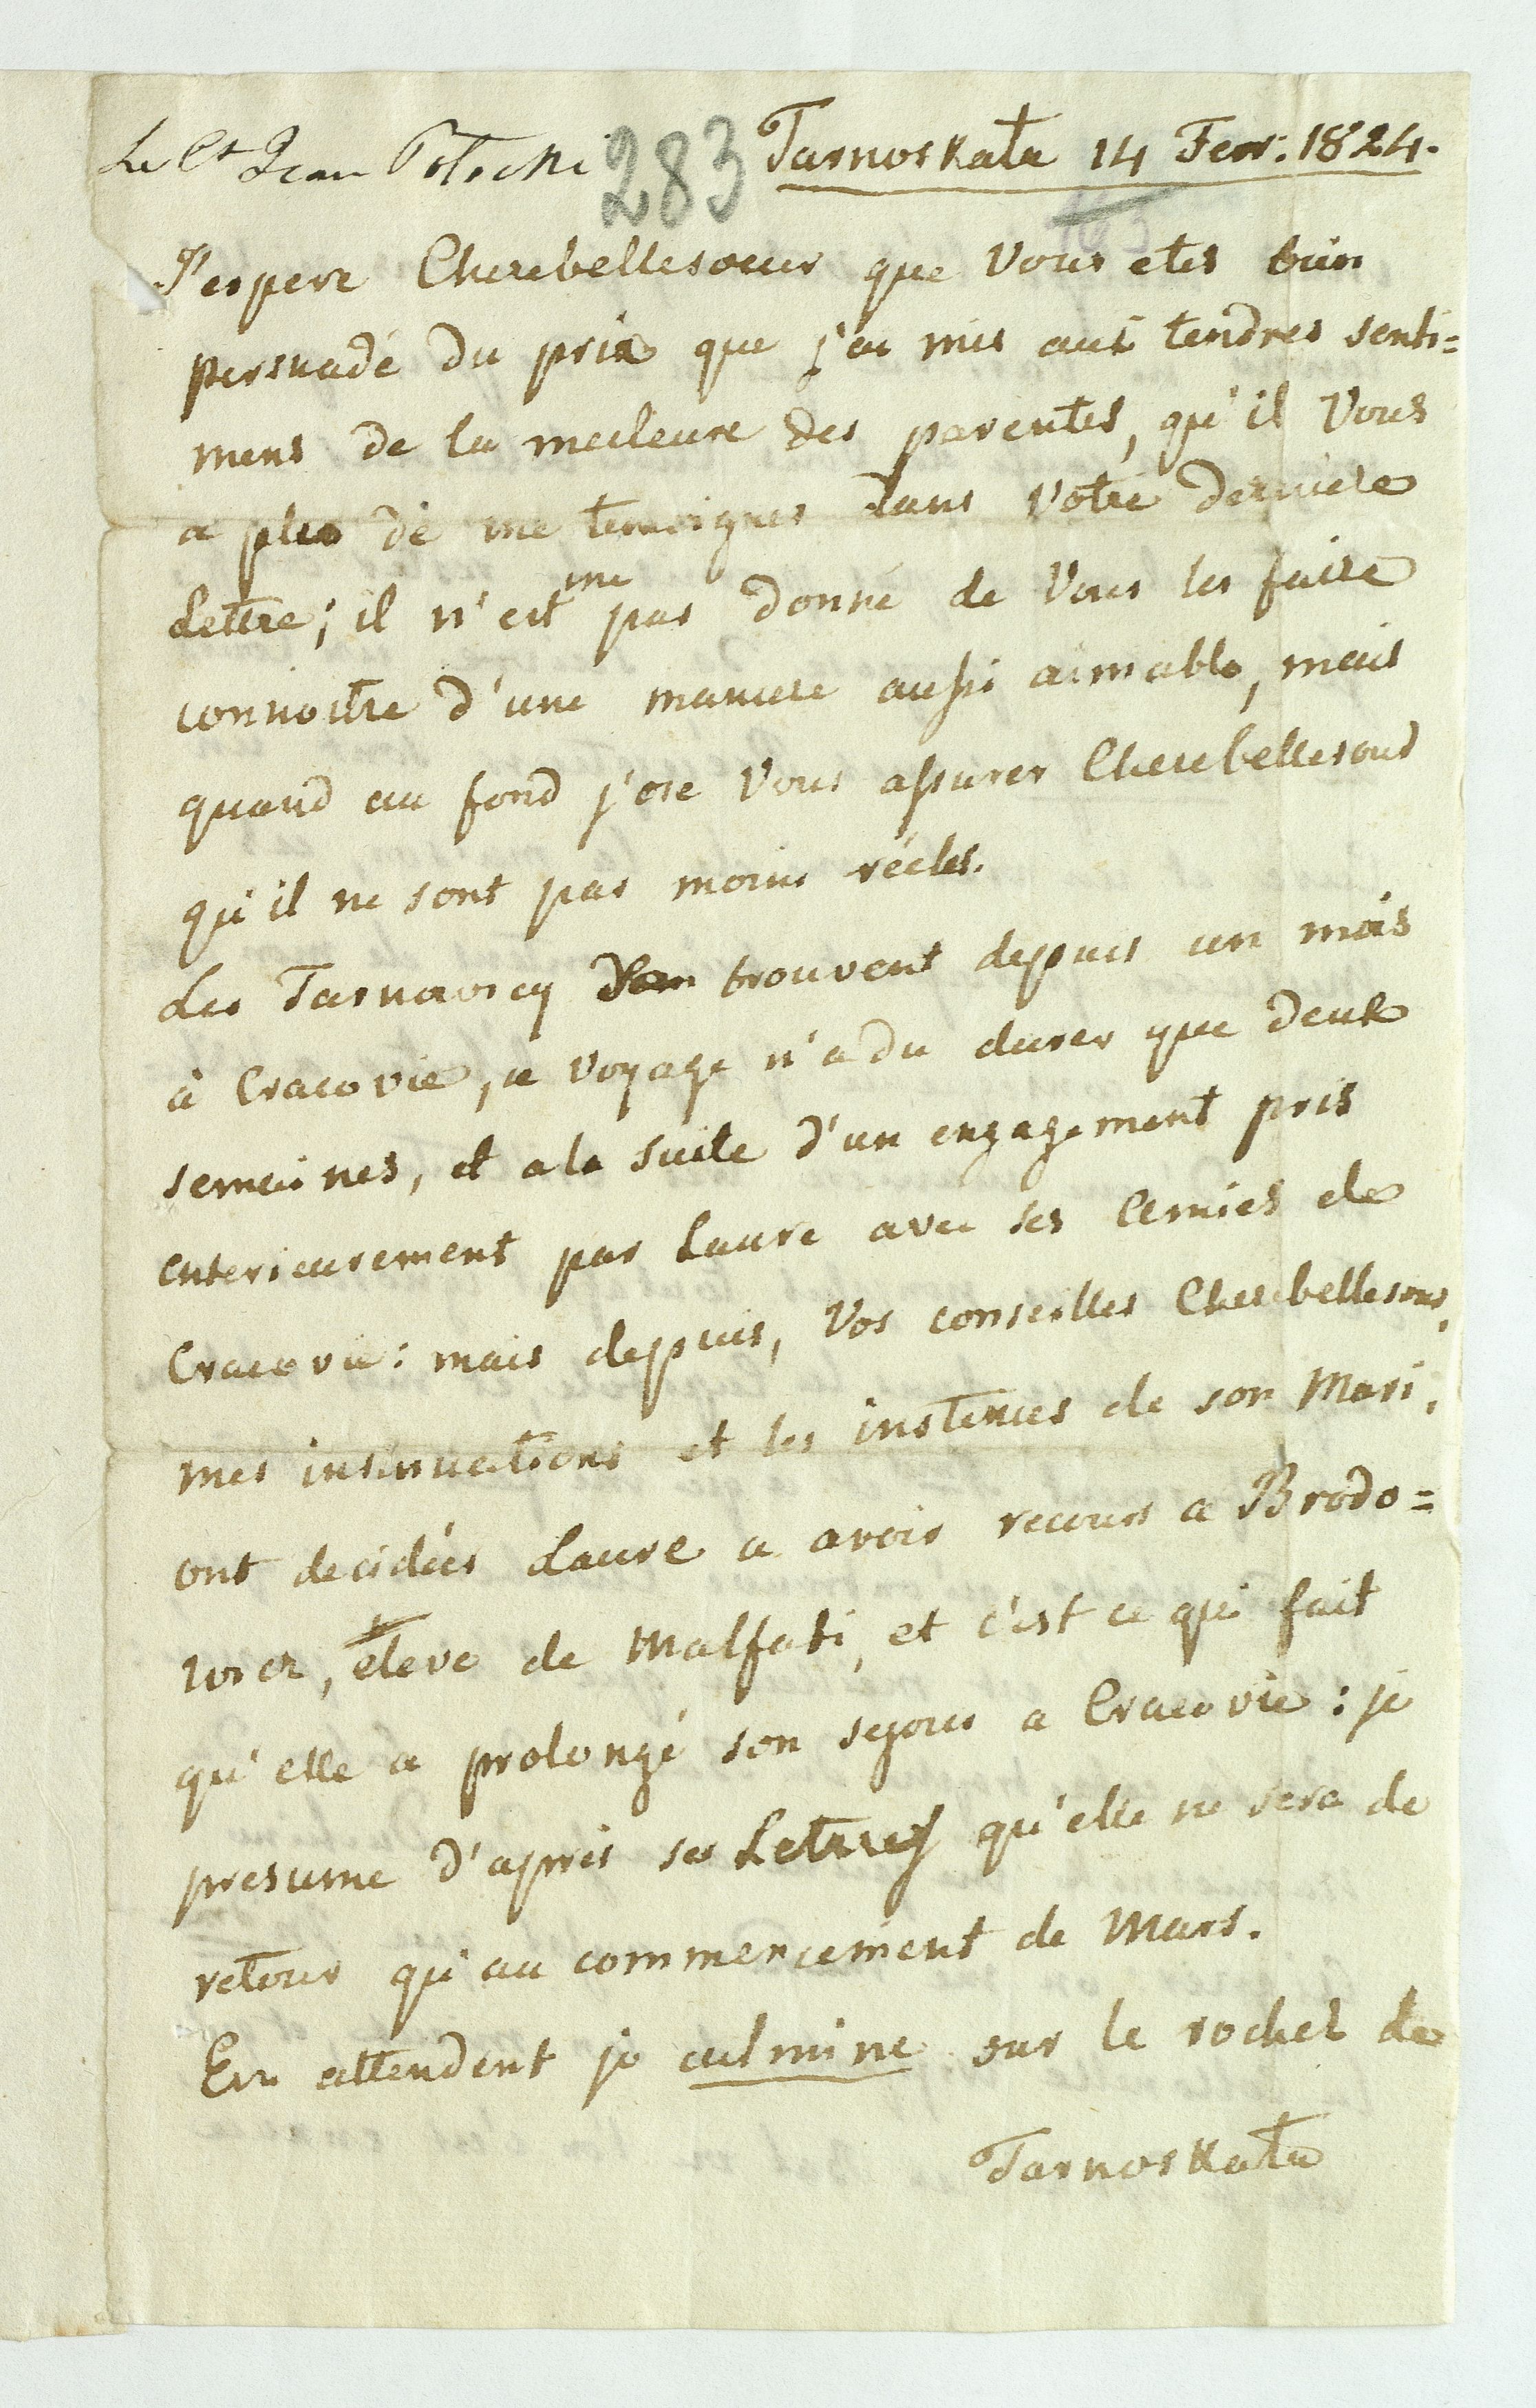 Le Ct Jean Potocki 283 Tarnoskała 14 Fevr. 1824.
163
J'espere Cherebellesoeur que Vous etes bien
persuadé du prix que j'ai mis aux tendres senti=
mens de la meileure des parentes, qu'il Vous
a plu de me temoigner dans Votre derniere
Lettre; il n'est me pas donné de Vous les faire
connoitre d'une maniere aussi aimable, mais
quand au fond j'ose Vous assurer Cherebellesoeur
qu'il ne sont pas moins réeles.
Les Tarnowscy trouvent depuis un mois
à Cracovie, ce voyage n'a du durer que deux
semaines, et a la suite d'un engagement pris
anterieurement par Laure avec ses Amies de
Cracovie: mais depuis, Vos conseilles Cherebellesoeur,
mes insinuations et les instences de son Mari,
ont decidées Laure a avoir recours a Brodo=
wicz, eleve de Malfati, et c'est ce qui fait
qu'elle a prolongé son sejour a Cracovie: je
presume d'apres ses Lettres qu'elle ne sera de
retour qu'au commencement de Mars.
En attendent je culmine sur le rocher de
Tarnoskała